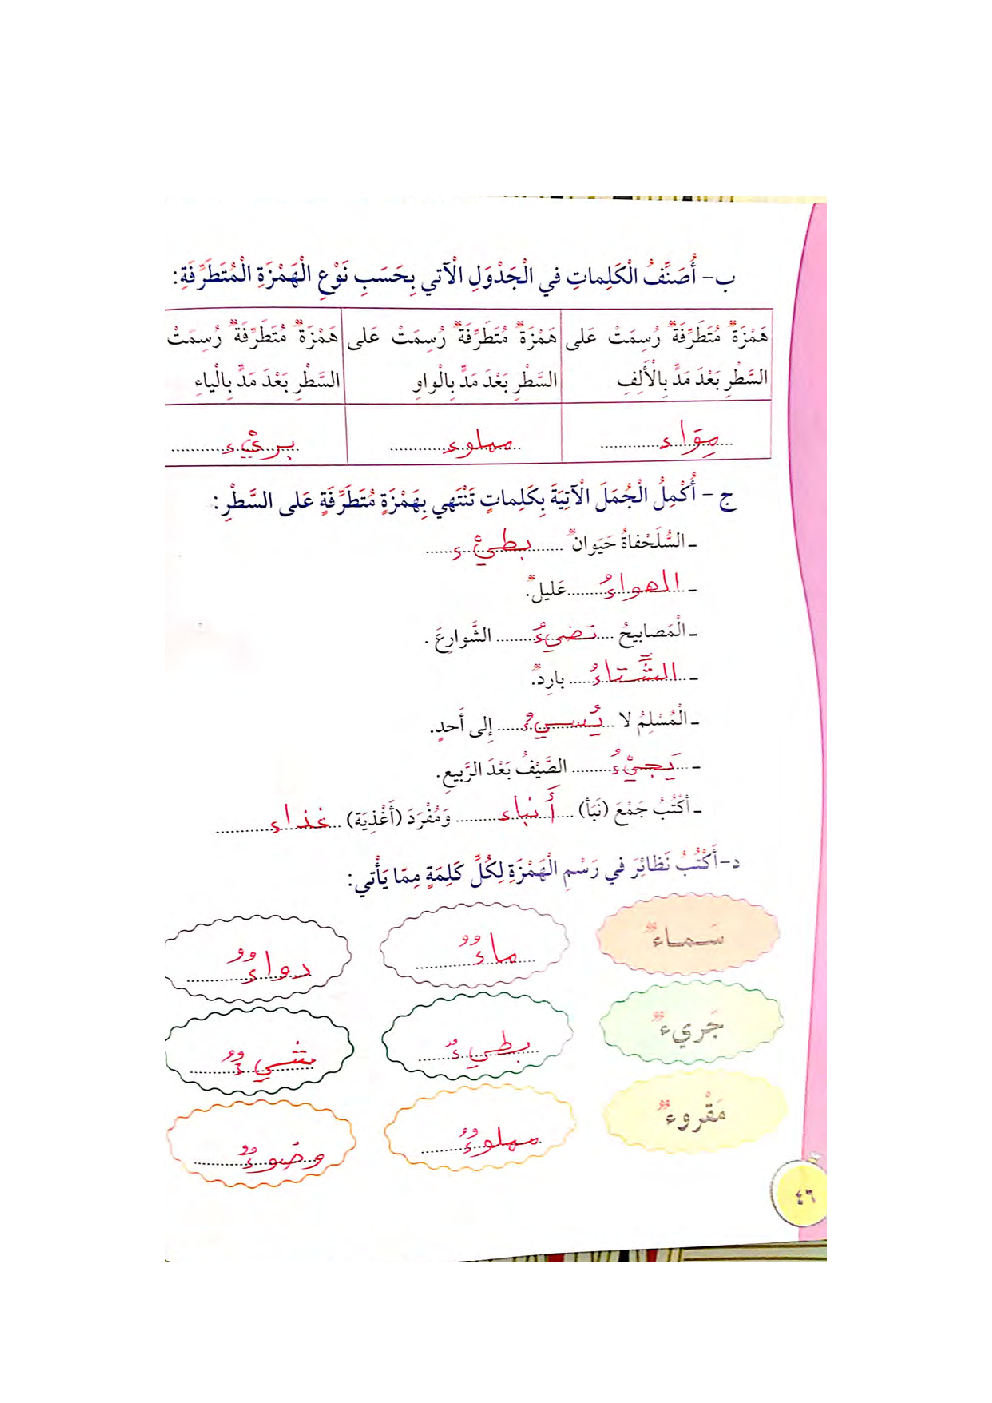 ب- أُصَنِّفُ الْكَلِماتِ في الْجَدْوَلِ الْآتي بِحَسَبِ نَوْعِ الْهَمْزَةِ الْمُتَطَرِّفَةِ:
هَمْزَةٌ مُتَطَرِّفَةٌ رُسِمَتْ عَلى السَّطْرِ بَعْدَ مَدٍّ بِالْأَلِفِ
هَمْزَةٌ مُتَطَرِّفَةٌ رُسِمَتْ عَلى السَّطْرِ بَعْدَ مَدٍّ بِالْواوِ
هَمْزَةٌ مُتَطَرِّفَةٌ رُسِمَتْ السَّطْرِ بَعْدَ مَدٍّ بِالْياءِ
مملوء
بريء
ج- أُكْمِلُ الْجُمَلَ الْآتِيَةَ بِكَلِماتٍ تَنْتَهي بِهَمْزَةٍ مُتَطَرِّفَةٍ عَلى السَّطْرِ:
- السُّلَحْفاةُ حَيَوانٌ بطيء
- الهواءُ عَليلٌ.
- الْمَصابيحُ تضيءُ الشَّوارِعَ.
- الشَّتاءُ بارِدٌ.
- الْمُسْلِمُ لا يُسيءُ إِلى أَحَدٍ.
- يَجيءُ الصَّيْفُ بَعْدَ الرَّبيعِ.
- أَكْتُبُ جَمْعَ (نَبَأ) أَنباء وَمُفْرَدَ (أَغْذِيَة) غذاء
د- أَكْتُبُ نَظائِرَ في رَسْمِ الْهَمْزَةِ لِكُلِّ كَلِمَةٍ مِمّا يَأْتي:
سَماءٌ ماءٌ دواءٌ
جَريءٌ بطيءٌ شيءٌ
مَقْروءٌ مملوءٌ وضوءٌ
٤٦